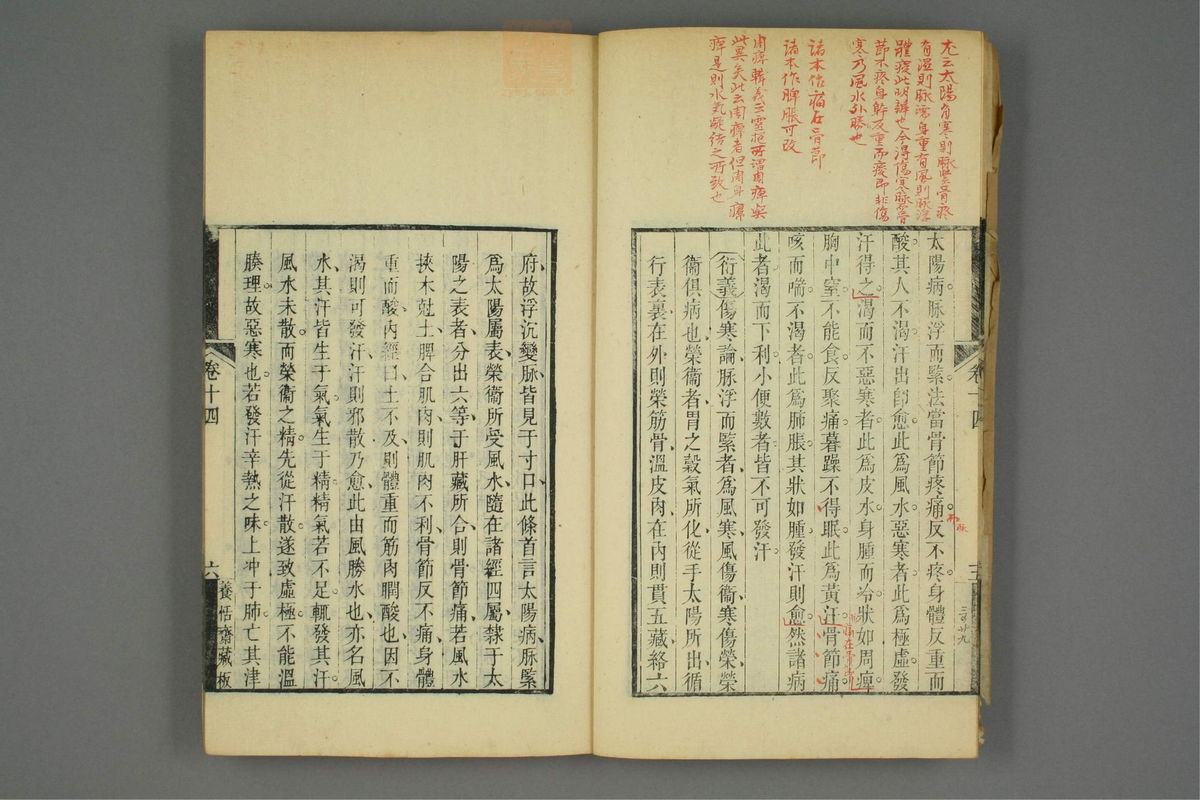 尤云太陽有寒則脉緊骨疼
有濕則脉濡身重有風則脉浮
體痠此明辨也今得傷寒脉骨
節不疼身幹反重而痠即非傷
寒乃風水外勝也
諸本作痛在骨節
諸本作脾脹可改
周痺
此異矣此云周痺者但周身
痺是則水氣凝結之所致也
太陽病脉浮而緊法當骨節疼痛反不疼身體反重而
酸其人不渴汗出卽愈此爲風水惡寒者此爲極虛發
汗得之渴而不惡寒者此爲皮水身腫而冷狀如周痺
胸中窒不能食反聚痛暮躁不得眠此爲黃汗骨節痛
咳而喘不渴者此爲肺脹其狀如腫發汗則愈然諸病
此者渴而下利小便數者皆不可發汗
衍義傷寒論脉浮而緊者爲風寒風傷衞寒傷榮榮
衞俱病也榮衞者胃之穀氣所化從手太陽所出循
行表裏在外則榮筋骨溫皮肉在內則貫五藏絡六
卷十四
府故浮沉變脉皆見于寸口此條首言太陽病脉緊
爲太陽屬表榮衞所受風水隨在諸經四屬隸于太
陽之表者分出六等于肝藏所合則骨節痛若風水
挾木尅土脾合肌肉則肌肉不利骨節反不痛身體
重而酸內經曰土不及則體重而筋肉瞤酸也因不
渴則可發汗汗則邪散乃愈此由風勝水也亦名風
水其汗皆生于氣氣生于精精氣若不足輒發其汗
風水未散而榮衞之精先從汗散遂致虛極不能溫
腠理故惡寒也若發汗辛熱之味上冲于肺亡其津
卷十四
六
養恬齋藏板